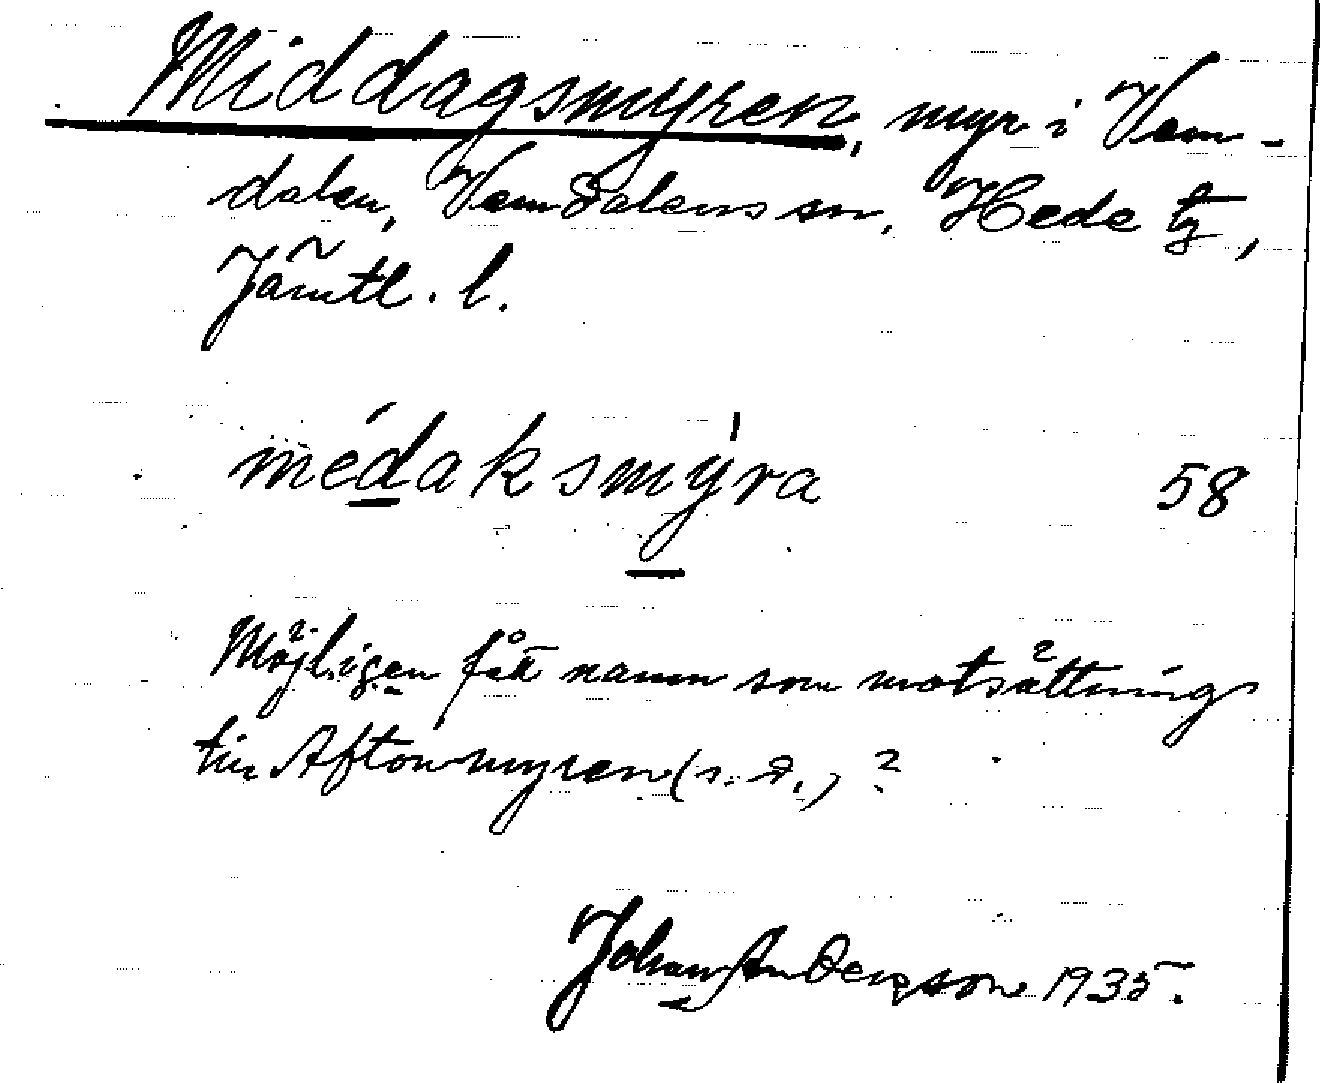 Middagsmyren, myr i Vem-
dalen, Vemdalens sn, Hede tg,
Jämtl. l.
médaksmýra 58
Möjligen fått namn som motsättning
till Aftonmyren (s. d.) ?
Johan Anderson 1935.